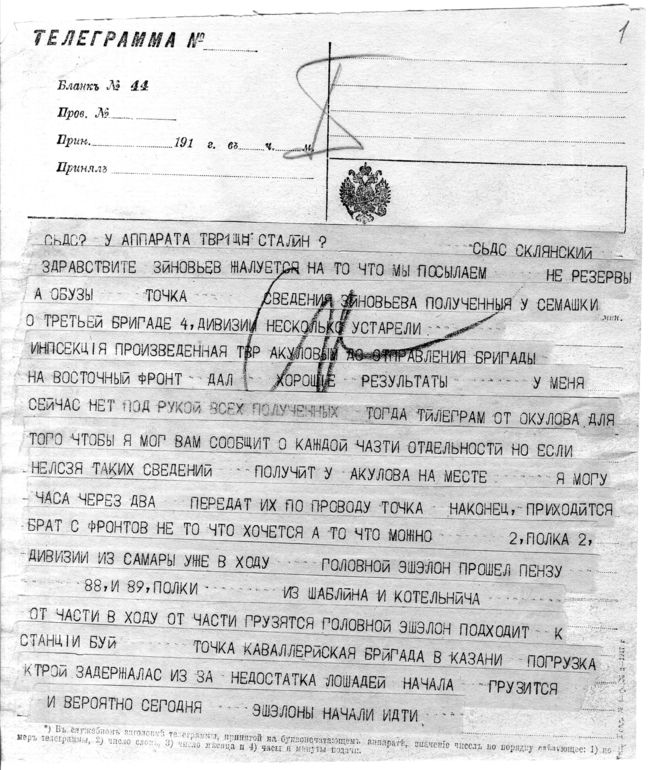 1
ТЕЛЕГРАММА №
Бланкъ № 44
Пров. №
Прин. 191 г. въ ч. м.
Принялъ
СЬДС? У АППАРАТА ТВРIЩ СТАЛIН ? СЬДС СКЛЯНСКИЙ
ЗДРАВСТВИТЕ ЗIНОВЬЕВ ЖАЛУЕТСЯ НА ТО ЧТО МЫ ПОСЫЛАЕМ НЕ РЕЗЕРВЫ
А ОБУЗЫ ТОЧКА СВЕДЕНИЯ ЗIНОВЬЕВА ПОЛУЧЕННЫЯ У СЕМАШКИ
О ТРЕТЬЕЙ БРИГАДЕ 4, ДИВИЗИИ НЕСКОЛЬКО УСТАРЕЛИ
ИНПСЕКЦIЯ ПРОИЗВЕДЕННАЯ ТВР АКУЛОВЫМ ДО ОТПРАВЛЕНИЯ БРИГАДЫ
НА ВОСТОЧНЫЙ ФРОНТ ДАЛ ХОРОШIЕ РЕЗУЛЬТАТЫ У МЕНЯ
СЕЙЧАС НЕТ ПОД РУКОЙ ВСЕХ ПОЛУЧЕННЫХ ТОГДА ТIЛЕГРАМ ОТ ОКУЛОВА ДЛЯ
ТОГО ЧТОБЫ Я МОГ ВАМ СООБЩИТ О КАЖДОЙ ЧАЗТИ ОТДЕЛЬНОСТИ НО ЕСЛИ
НЕЛСЗЯ ТАКИХ СВЕДЕНИЙ ПОЛУЧИТ У АКУЛОВА НА МЕСТЕ Я МОГУ
ЧАСА ЧЕРЕЗ ДВА ПЕРЕДАТ ИХ ПО ПРОВОДУ ТОЧКА НАКОНЕЦ, ПРИХОДIТСЯ
БРАТ С ФРОНТОВ НЕ ТО ЧТО ХОЧЕТСЯ А ТО ЧТО МОЖНО 2, ПОЛКА 2,
ДИВИЗИИ ИЗ САМАРЫ УЖЕ В ХОДУ ГОЛОВНОЙ ЭШЭЛОН ПРОШЕЛ ПЕНЗУ
88, И 89, ПОЛКИ ИЗ ШАБЛIНА И КОТЕЛЬНIЧА
ОТ ЧАСТИ В ХОДУ ОТ ЧАСТИ ГРУЗЯТСЯ ГОЛОВНОЙ ЭШЭЛОН ПОДХОДИТ К
СТАНЦIИ БУЙ ТОЧКА КАВАЛЛЕРIЙСКАЯ БРИГАДА В КАЗАНИ ПОГРУЗКА
КТРОЙ ЗАДЕРЖАЛАС ИЗ ЗА НЕДОСТАТКА ЛОШАДЕЙ НАЧАЛА ГРУЗИТСЯ
И ВЕРОЯТНО СЕГОДНЯ ЭШЭЛОНЫ НАЧАЛИ ИДТИ
*) Въ служебномъ заголовкѣ телеграммы, принятой на буквопечатающемъ аппаратѣ, значеніе чиселъ по порядку слѣдующее: 1) но
меръ телеграммы, 2) число словъ, 3) число мѣсяца и 4) часы и минуты подачи.